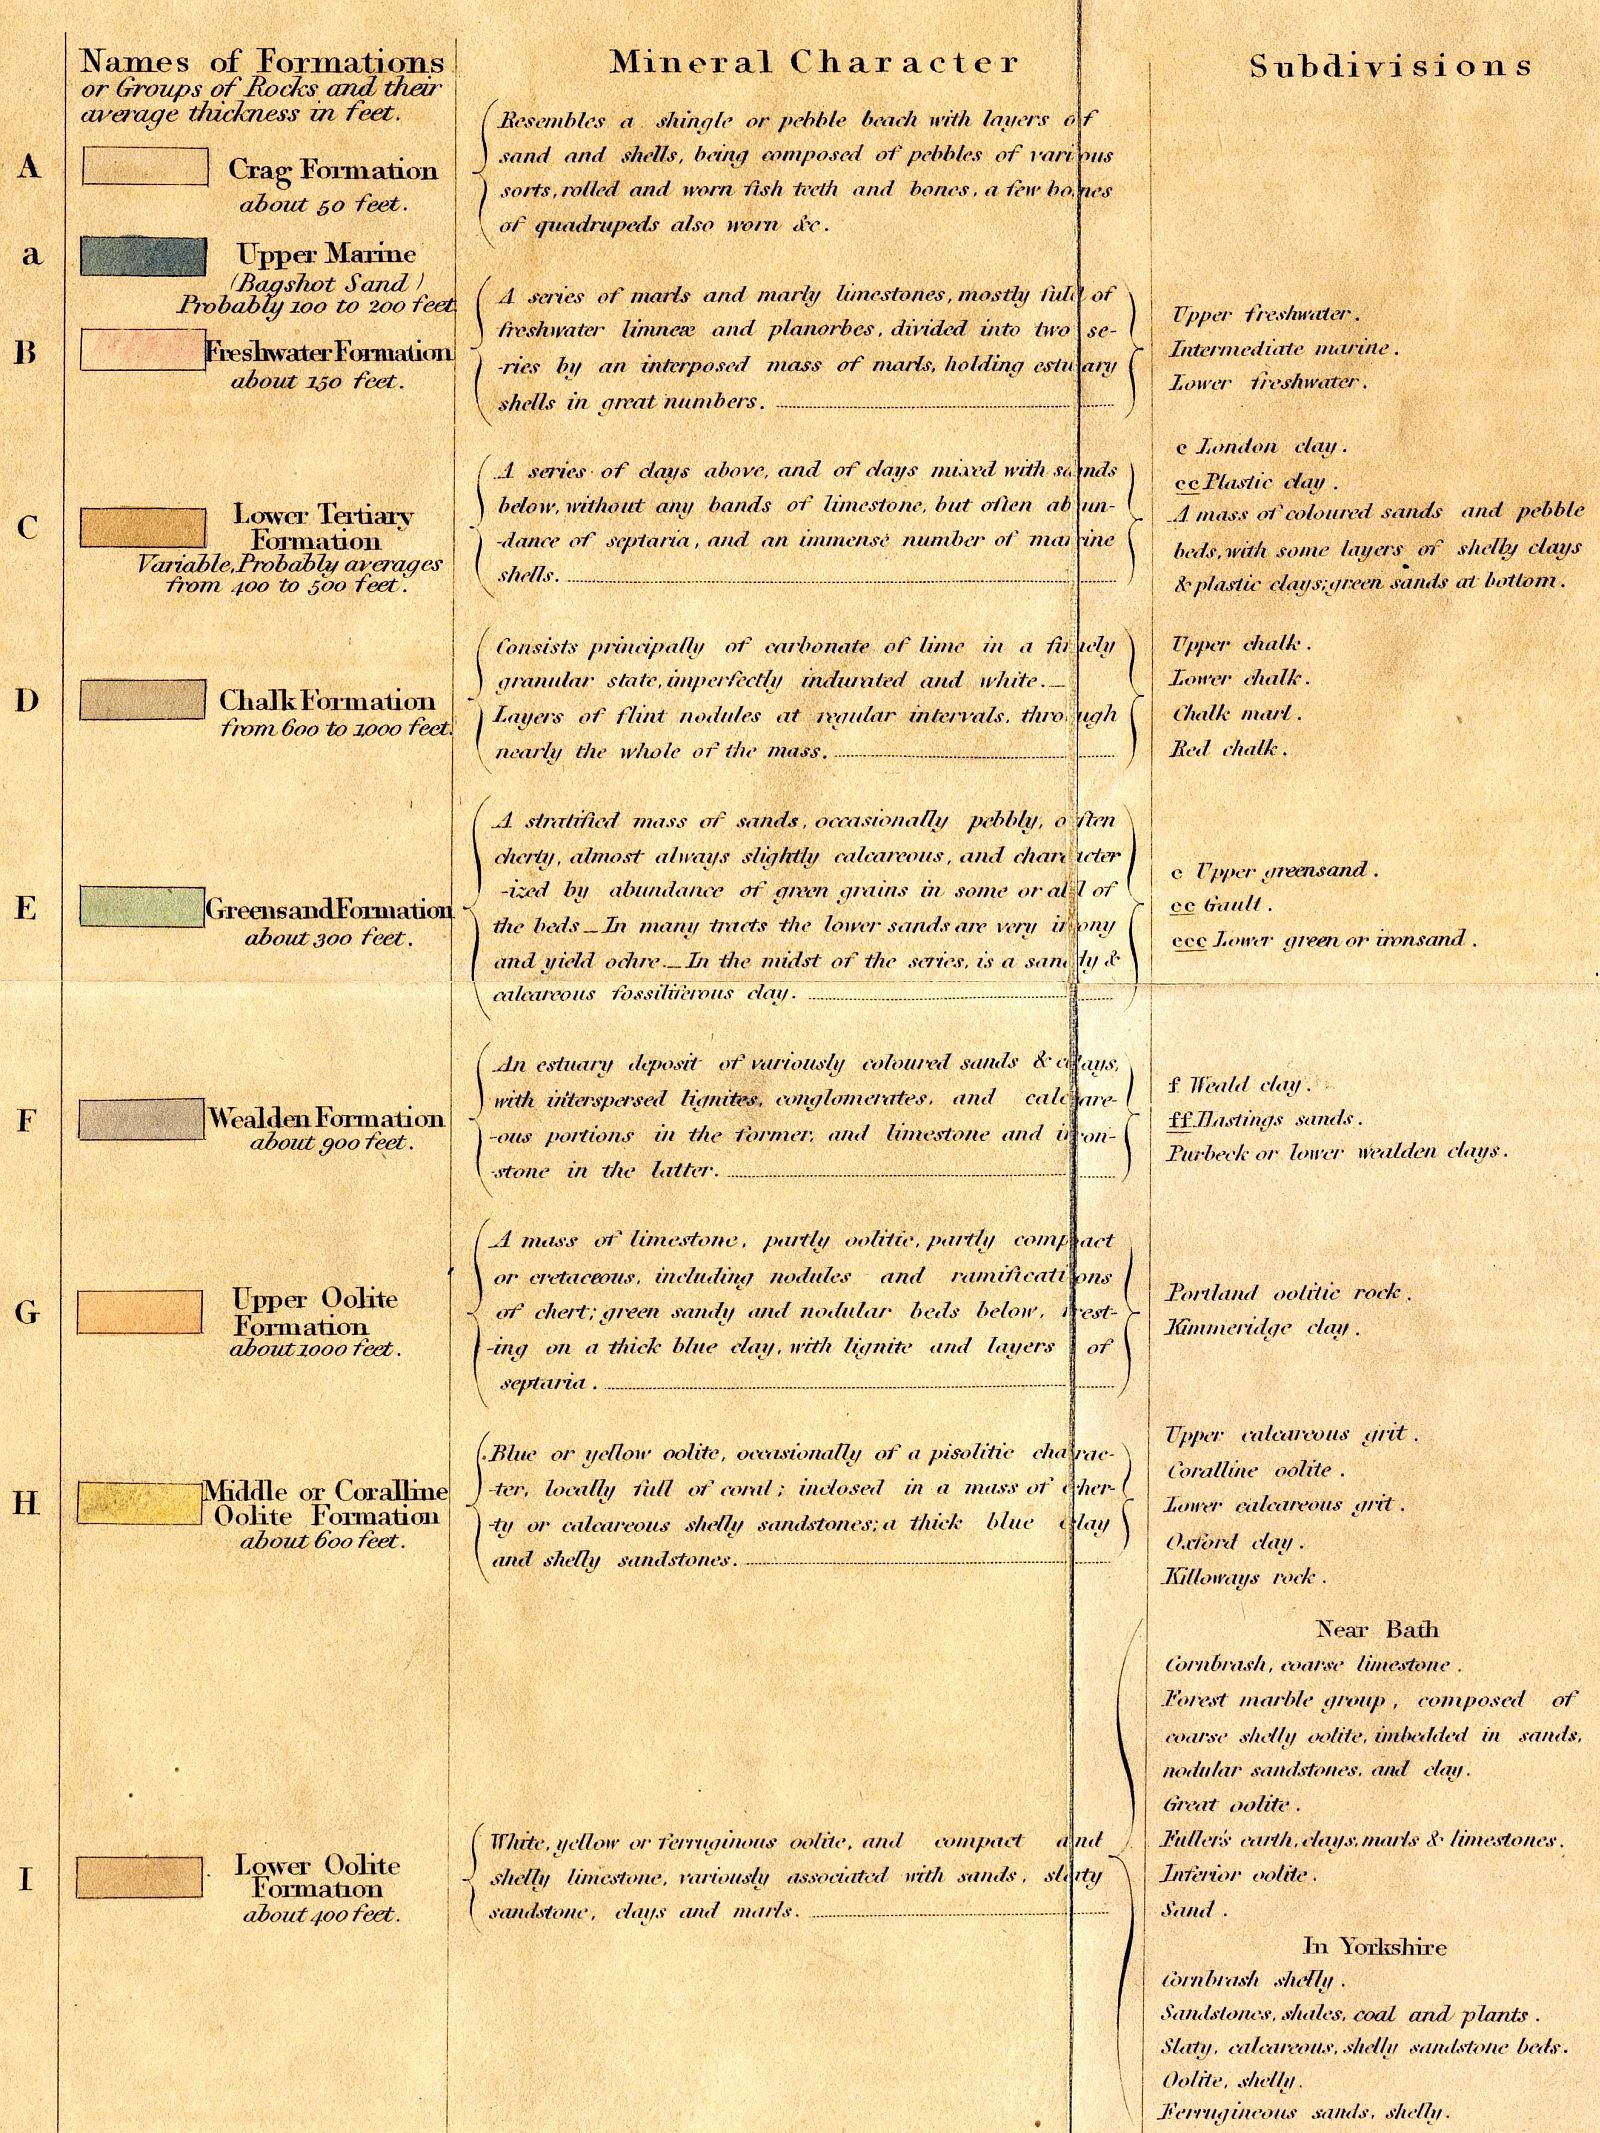 Names of Formations
or Groups of Rocks and their
average thickness in feet.
Mineral Character
Subdivisions
A
Crag Formation
about 50 feet.
Resembles a shingle or pebble beach with layers of
sand and shells, being composed of pebbles of various
sorts, rolled and worn fish teeth and bones, a few bones
of quadrupeds also worn &c.
a
Upper Marine
(Bagshot Sand)
Probably 100 to 200 feet
B
Freshwater Formation
about 150 feet.
A series of marls and marly limestones, mostly full of
freshwater limneæ and planorbes, divided into two se-
-ries by an interposed mass of marls, holding estuary
shells in great numbers.
Upper freshwater.
Intermediate marine.
Lower freshwater.
C
Lower Tertiary
Formation
Variable, Probably averages
from 400 to 500 feet.
A series of clays above, and of clays mixed with sands
below, without any bands of limestone, but often abun-
-dance of septaria, and an immense number of marine
shells.
c London clay.
cc Plastic clay.
A mass of coloured sands and pebble
beds, with some layers of shelly clays
& plastic clays; green sands at bottom.
D
Chalk Formation
from 600 to 1000 feet.
Consists principally of carbonate of lime in a finely
granular state, imperfectly indurated and white._
Layers of flint nodules at regular intervals, through
nearly the whole of the mass.
Upper chalk.
Lower chalk.
Chalk marl.
Red chalk.
E
Greensand Formation
about 300 feet.
A stratified mass of sands, occasionally pebbly, often
cherty, almost always slightly calcareous, and character
-ized by abundance of green grains in some or all of
the beds _ In many tracts the lower sands are very irony
and yield ochre._ In the midst of the series, is a sandy &
calcareous fossiliferous clay.
e Upper greensand.
ee Gault.
eee Lower green or ironsand.
F
Wealden Formation
about 900 feet.
An estuary deposit of variously coloured sands & clays,
with interspersed lignites, conglomerates, and calcare-
-ous portions in the former, and limestone and iron-
-stone in the latter.
f Weald clay.
ff Hastings sands.
Purbeck or lower wealden clays.
G
Upper Oolite
Formation
about 1000 feet.
A mass of limestone, partly oolitic, partly compact
or cretaceous, including nodules and ramifications
of chert; green sandy and nodular beds below, rest-
-ing on a thick blue clay, with lignite and layers of
septaria.
Portland oolitic rock.
Kimmeridge clay.
H
Middle or Coralline
Oolite Formation
about 600 feet.
Blue or yellow oolite, occasionally of a pisolitic charac-
-ter, locally full of coral; inclosed in a mass of cher-
-ty or calcareous shelly sandstones; a thick blue clay
and shelly sandstones.
Upper calcareous grit.
Coralline oolite.
Lower calcareous grit.
Oxford clay.
Killoways rock.
I
Lower Oolite
Formation
about 400 feet.
White, yellow or ferruginous oolite, and compact and
shelly limestone, variously associated with sands, slaty
sandstone, clays and marls.
Near Bath
Cornbrash, coarse limestone.
Forest marble group, composed of
coarse shelly oolite, imbedded in sands,
nodular sandstones, and clay.
Great oolite.
Fuller's earth, clays, marls & limestones.
Inferior oolite.
Sand.
In Yorkshire
Cornbrash shelly.
Sandstones, shales, coal and plants.
Slaty, calcareous, shelly sandstone beds.
Oolite, shelly.
Ferrugineous sands, shelly.